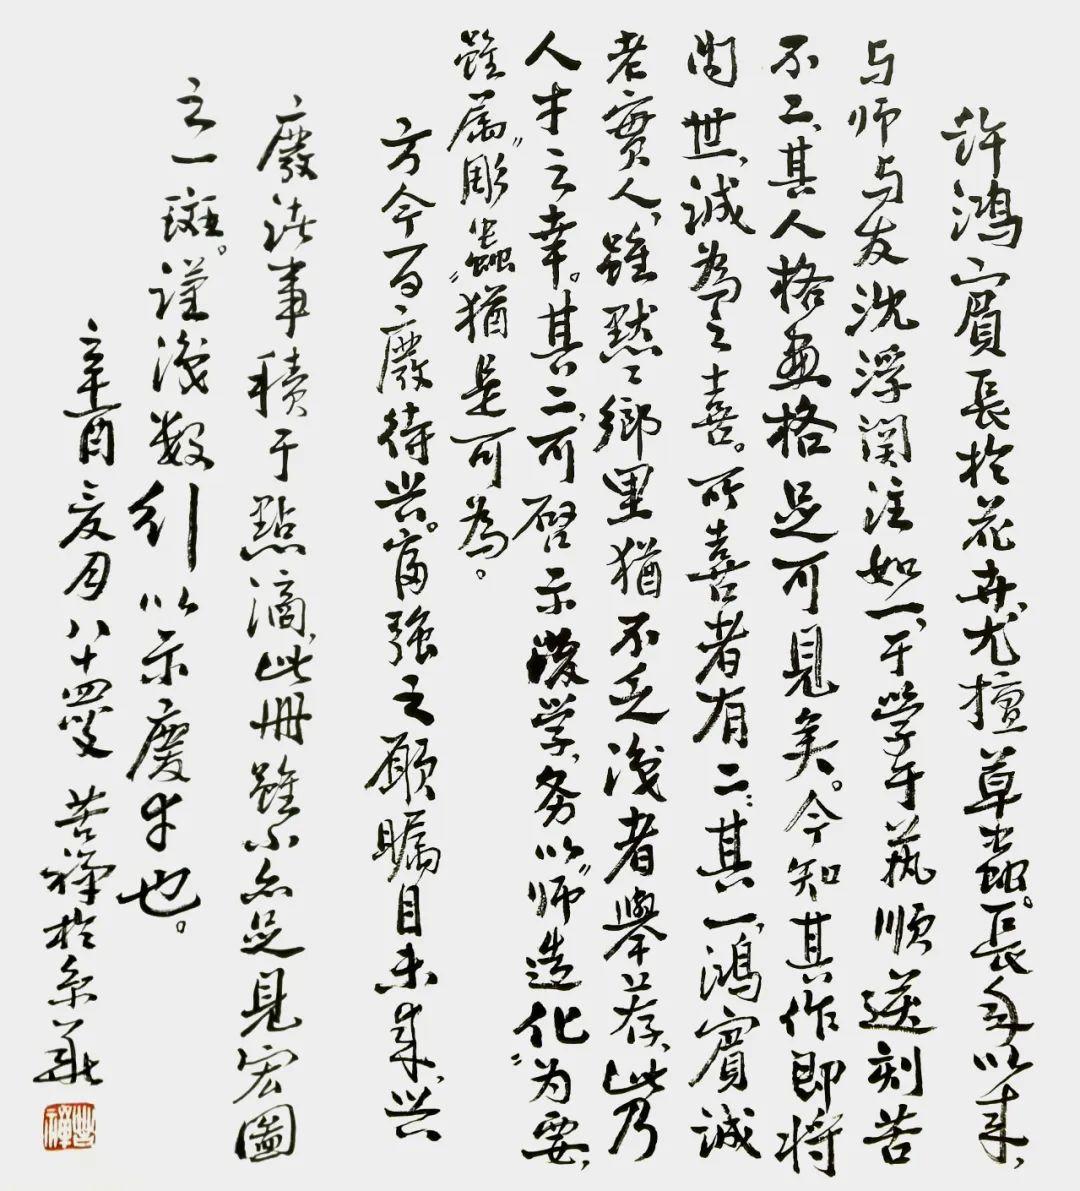 許鴻賓長於花卉尤擅草蟲。長年以来，
与师与友沈浮関注如一，于学于艺順逆刻苦
不二，其人格画格足可見矣。今知其作即将
问世，誠為之喜。所喜者有二：其一，鴻賓誠
老實人，雖默々鄉里猶不乏識者舉荐，此乃
人才之幸。其二，可啓示後学，务以“师造化”为要，
雖属“彫蟲”猶是可為。
方今百廢待兴。富强之願瞩目未来，兴
廢諸事積于點滴，此册雖小亦足見宏图
之一斑。謹識数引以示慶幸也。
辛酉夏月八十四叟 苦禅於京華
苦禪